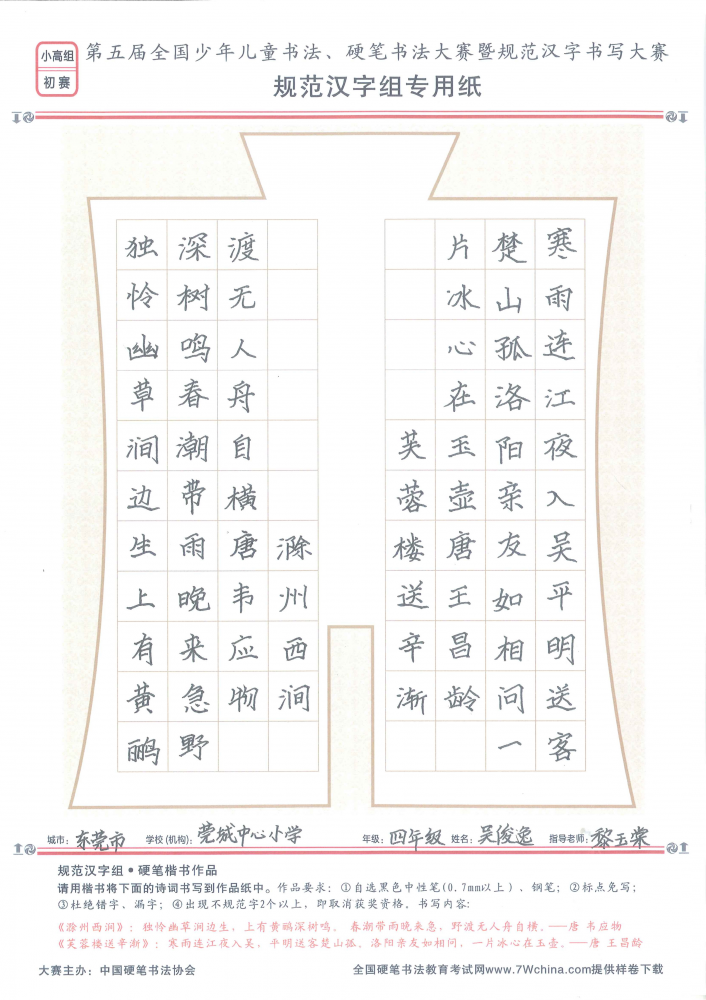 小高组
初赛
第五届全国少年儿童书法、硬笔书法大赛暨规范汉字书写大赛
规范汉字组专用纸
寒雨连江夜入吴平明送客
楚山孤洛阳亲友如相问一
片冰心在玉壶唐王昌龄
芙蓉楼送辛渐
滁州西涧
渡无人舟自横唐韦应物
深树鸣春潮带雨晚来急野
独怜幽草涧边生上有黄鹂
城市：东莞市 学校(机构)：莞城中心小学 年级：四年级 姓名：吴俊逸 指导老师：黎玉棠
规范汉字组•硬笔楷书作品
请用楷书将下面的诗词书写到作品纸中。作品要求：①自选黑色中性笔(0.7mm以上)、钢笔；②标点免写；
③杜绝错字，漏字；④出现不规范字2个以上，即取消获奖资格。书写内容：
《滁州西涧》：独怜幽草涧边生，上有黄鹂深树鸣。 春潮带雨晚来急，野渡无人舟自横。——唐 韦应物
《芙蓉楼送辛渐》：寒雨连江夜入吴，平明送客楚山孤。洛阳亲友如相问，一片冰心在玉壶。——唐 王昌龄
大赛主办：中国硬笔书法协会 全国硬笔书法教育考试网www.7Wchina.com提供样卷下载